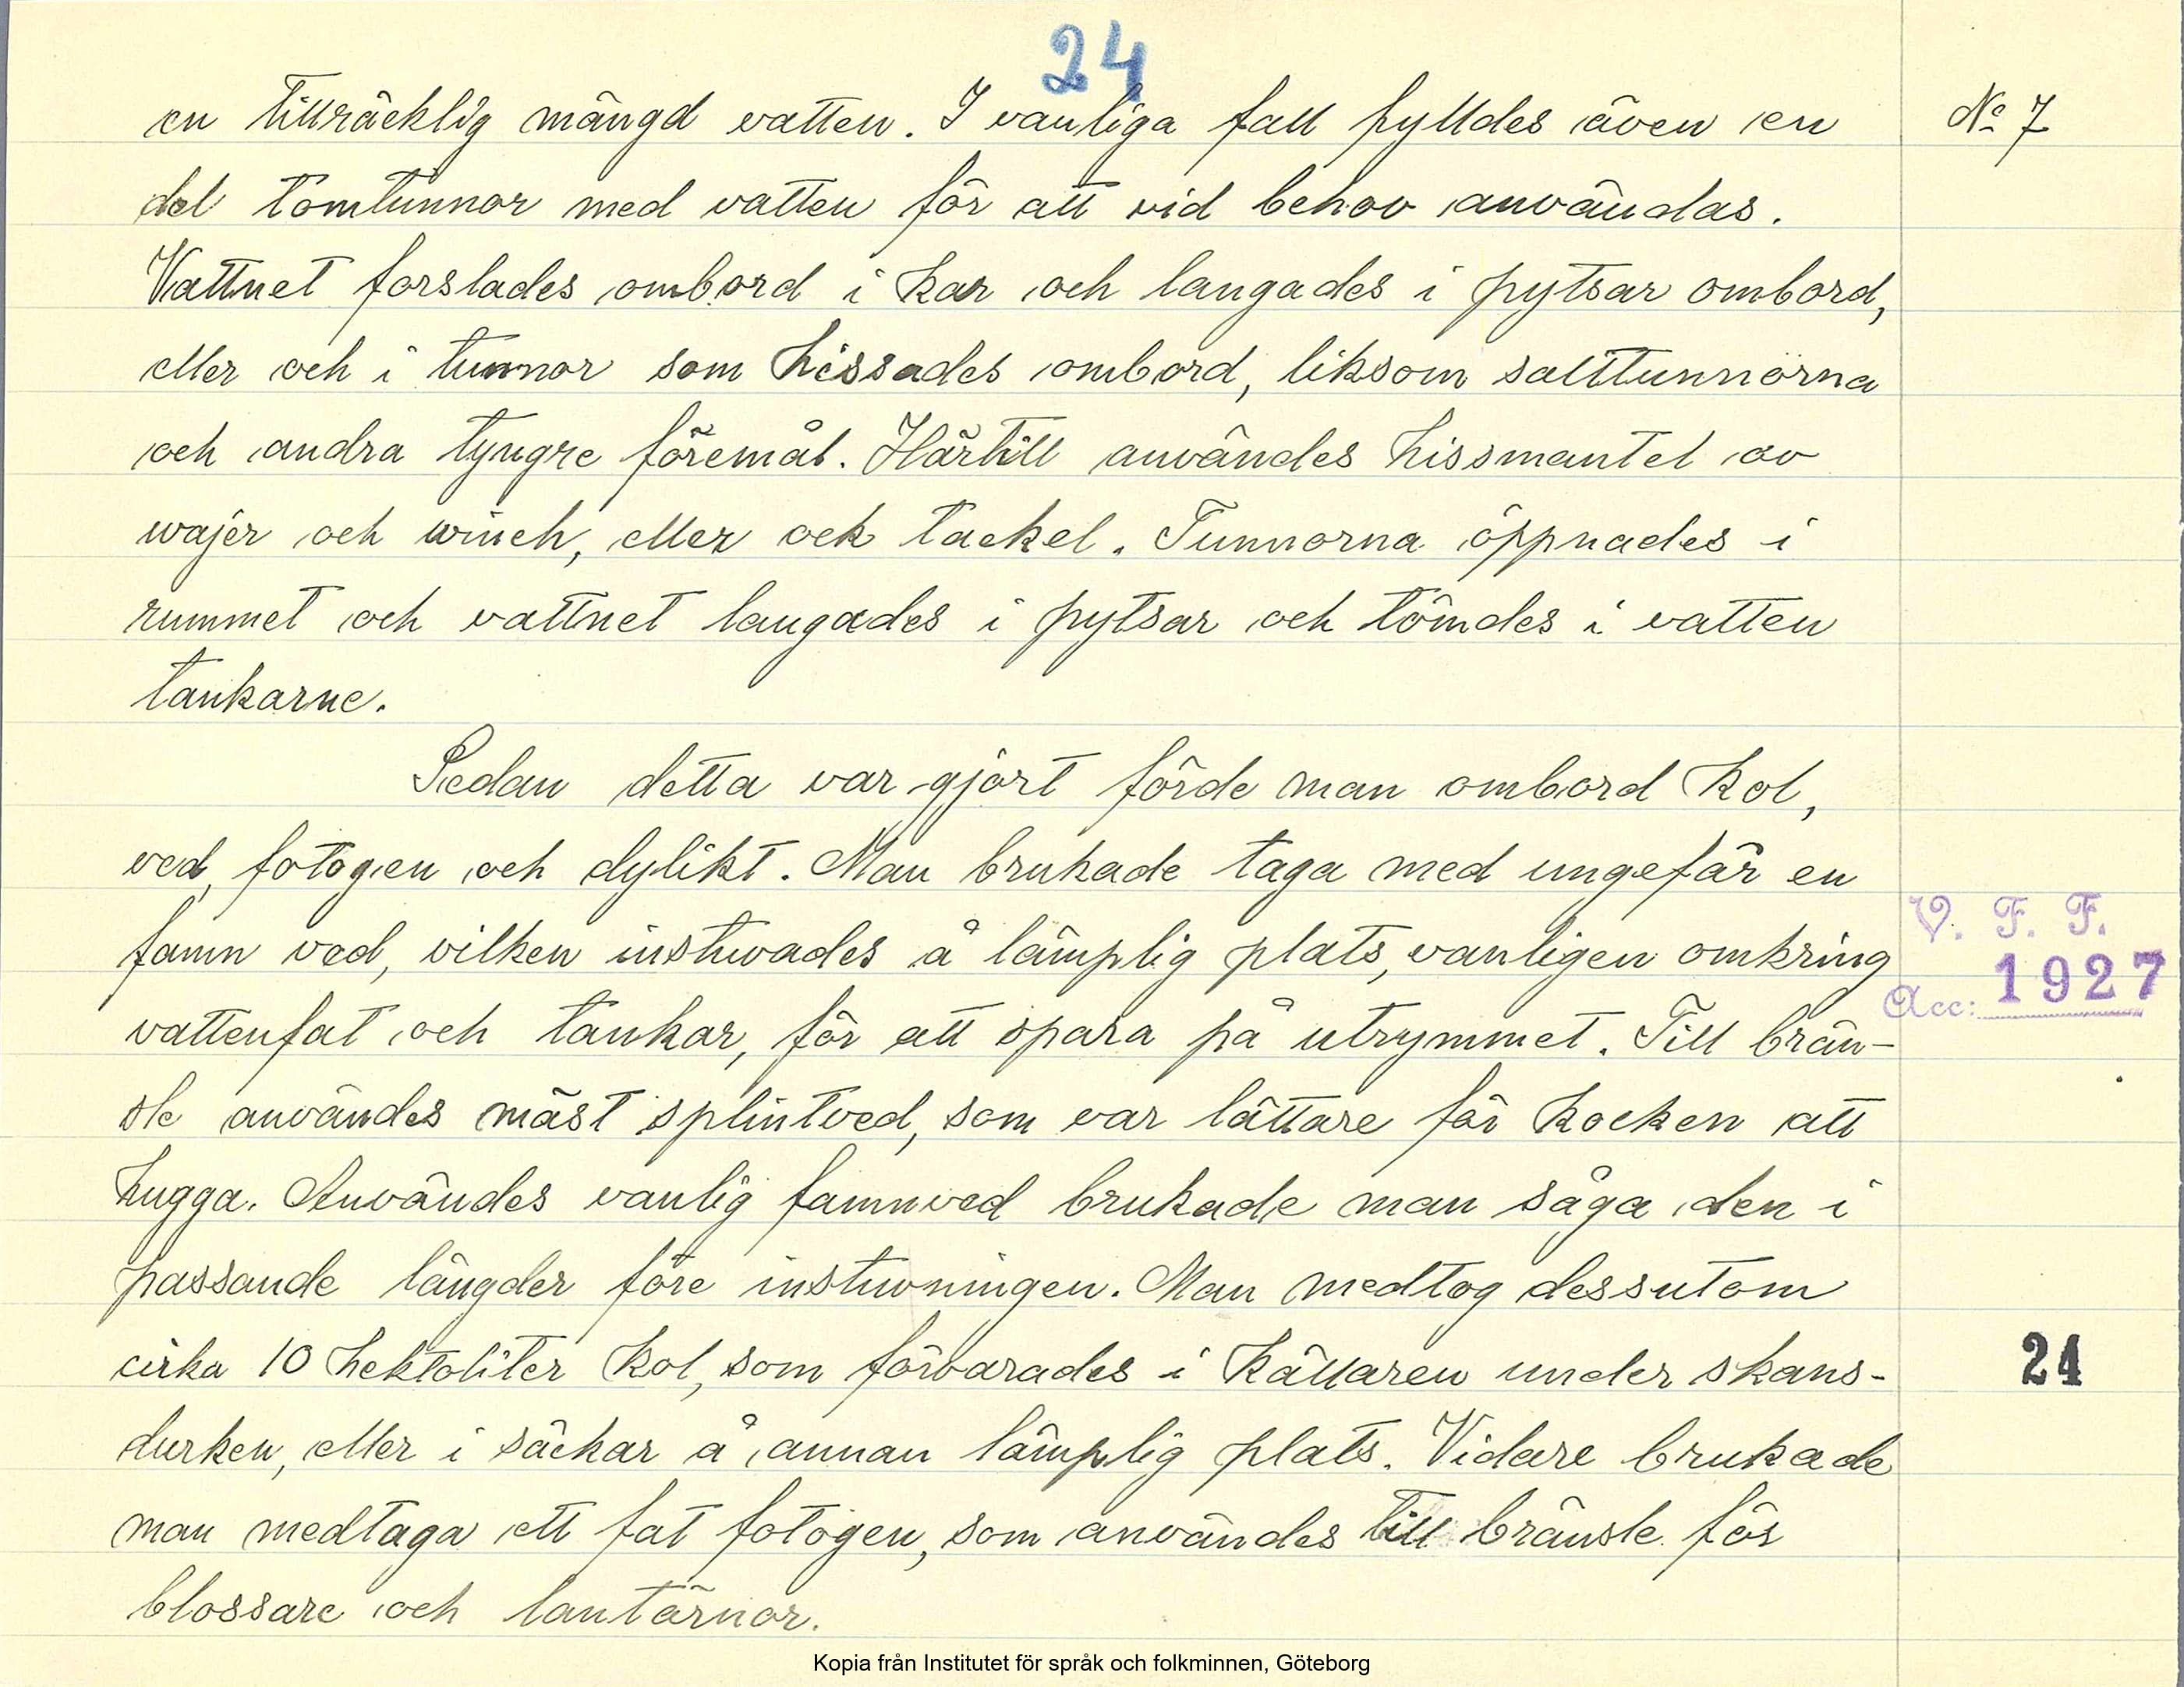 24
en tillräcklig mängd vatten. I vanliga fall fylldes även en
No 7
del tomtunnor med vatten för att vid behov användas.
Vattnet forslades ombord i kar och langades i pytsar ombord,
eller och i tunnor som hissades ombord, liksom salttunnorna
och andra tyngre föremål. Härtill användes hissmantel av
wajer och winch, eller ock tackel. Tunnorna öppnades i
rummet och vattnet langades i pytsar och tömdes i vatten
tankarne.
Sedan detta var gjort förde man ombord kol,
ved, fotogen och dylikt. Man brukade taga med ungefär en
famn ved, vilken instuvades å lämplig plats, vanligen omkring
V. F. F.
vattenfat och tankar, för att spara på utrymmet. Till brän-
Acc: 1927
sle användes mäst splintved, som var lättare för kocken att
hugga. Användes vanlig famnved brukade man såga den i
passande längder före instuvningen. Man medtog dessutom
cirka 10 hektoliter kol, som förvarades i källaren under skans-
24
durken, eller i säckar å annan lämplig plats. Vidare brukade
man medtaga ett fat fotogen, som användes till bränsle för
blossare och lantärnor.
Kopia från Institutet för språk och folkminnen, Göteborg